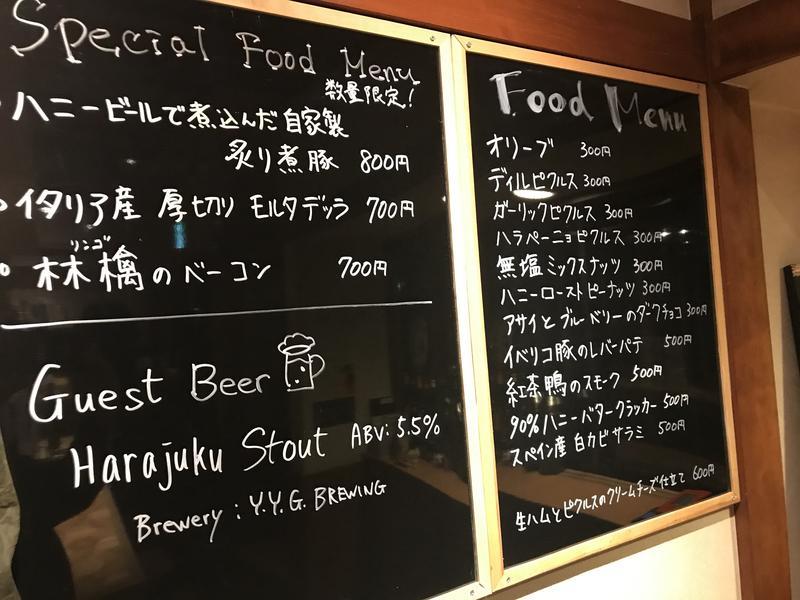 Special Food Menu
数量限定!
ハニービールで煮込んだ自家製
炙り煮豚 800円
イタリア産 厚切り モルタデッラ 700円
リンゴ
林檎のベーコン 700円
Guest Beer
Harajuku Stout ABV: 5.5%
Brewery : Y.Y.G. BREWING
Food Menu
オリーブ 300円
ディルピクルス 300円
ガーリックピクルス 300円
ハラペーニョピクルス 300円
無塩ミックスナッツ 300円
ハニーローストピーナッツ 300円
アサイとブルーベリーのダークチョコ 300円
イベリコ豚のレバーパテ 500円
紅茶鴨のスモーク 500円
90%ハニーバタークラッカー 500円
スペイン産 白カビサラミ 500円
生ハムとピクルスのクリームチーズ仕立て 600円